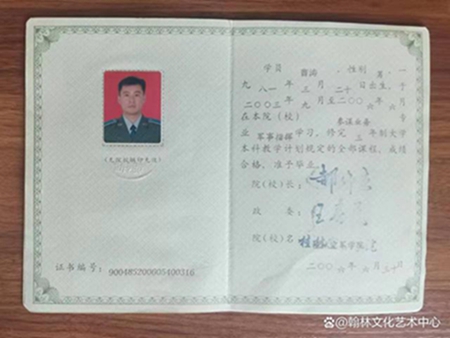 (无钢印纸印无效)
证书编号: 900485200005400316
学员 ，性别 男，一
九 八一 年 三 月 二十 日出生，于
二〇〇三 年 九 月至二〇〇 六 年 六 月
在本院（校） 参谋业务 专
业 军事指挥 学习，修完 三 年制大学
本科教学计划规定的全部课程，成绩
合格，准予毕业。
院（校）长：
政 委：
院（校）名 空军学院
二〇〇 六 年 六 月 三十 日
@翰林文化艺术中心